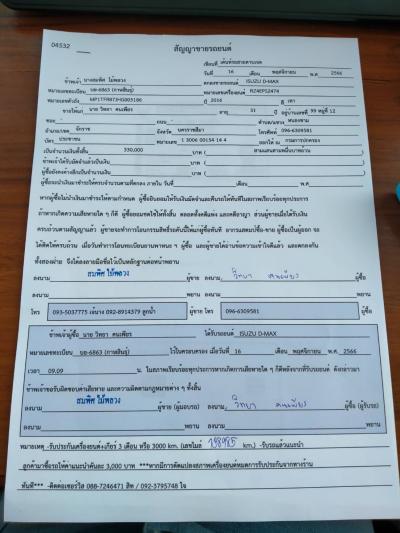 04532
สัญญาขายรถยนต์
เขียนที่ เต็นท์รถสายตามเทค
วันที่ 16 เดือน พฤศจิกายน พ.ศ. 2566
ข้าพเจ้า นางสมพิศ ไม้หลวง ตกลงขายรถยนต์ ISUZU D-MAX
หมายเลขทะเบียน บอ-6863 (กาฬสินธุ์) หมายเลขเครื่องยนต์ RZ4EPS2474
หมายเลขตัวถัง MP1TFR87JHG005186 ปี 2016 สี เทา
ขายให้แก่ นาย วิทยา คนเพียร อายุ 31 ปี อยู่บ้านเลขที่ 99 หมู่ที่ 12
ซอย - ถนน - ตำบล/แขวง หนองขาม
อำเภอ/เขต จักราช จังหวัด นครราชสีมา โทรศัพท์ 096-6309581
บัตร ประชาชน หมายเลข 1 3006 00154 16 4 ออกให้ ณ กรมการปกครอง
เป็นจำนวนเงินทั้งสิ้น 330,000 บาท ( สามแสนสามหมื่นบาทถ้วน )
ข้าพเจ้าได้รับมัดจำแล้วเป็นเงิน บาท ( )
ผู้ซื้อยังคงค้างอีกเป็นจำนวนเงิน บาท ( )
ผู้ซื้อจะนำเงินมาชำระให้ครบจำนวนตามที่ตกลง ภายใน วันที่ เดือน พ.ศ.
หากผู้ซื้อไม่นำเงินมาชำระให้ตามกำหนด ผู้ซื้อยินยอมให้ริบเงินมัดจำและคืนรถให้ทันทีในสภาพเรียบร้อยทุกประการ
ถ้าหากเกิดความเสียหายใด ๆ ก็ดี ผู้ซื้อยอมชดใช้ให้ทั้งสิ้น ตลอดทั้งคดีแพ่ง และคดีอาญา ส่วนผู้ขายเมื่อได้รับเงิน
ครบถ้วนตามสัญญาแล้ว ผู้ขายจะทำการโอนกรรมสิทธิ์รถคันนี้ให้แก่ผู้ซื้อทันที
ทั้งสองฝ่าย จึงได้ลงลายมือชื่อไว้เป็นหลักฐานต่อหน้าพยาน
ลงนาม สมพิศ ไม้หลวง ผู้ขาย ลงนาม วิทยา คนเพียร ผู้ซื้อ
ลงนาม ผู้ขาย ลงนาม ผู้ซื้อ
โทร 093-5037775 092-8914379 โทร 096-6309581
ข้าพเจ้าผู้ซื้อ นาย วิทยา คนเพียร ได้รับรถยนต์ ISUZU D-MAX
หมายเลขทะเบียน บอ-6863 (กาฬสินธุ์) ไว้ในครอบครอง เมื่อวันที่ 16 เดือน พฤศจิกายน พ.ศ. 2566
เวลา 09.09 น. ในสภาพเรียบร้อยทุกประการหากเกิดการเสียหายใด ๆ ก็ดีหลังจากที่รับรถยนต์ ดังกล่าวมา
ข้าพเจ้าขอรับผิดชอบค่าเสียหาย และความผิดตามกฎหมายต่าง ๆ ทั้งสิ้น
ลงนาม สมพิศ ไม้หลวง ผู้ขาย (ผู้มอบรถ) ลงนาม วิทยา คนเพียร ผู้ซื้อ (ผู้รับรถ)
ลงนาม ลงนาม
หมายเหตุ -รับประกันเครื่องยนต์+เกียร์ 3 เดือน หรือ 3000 km. (เลขไมล์ km.) -รับรถแล้วแนะนำ
ลูกค้ามาซื้อรถให้ค่าแนะนำคันละ 3,000 บาท ***หากมีการดัดแปลงสภาพเครื่องยนต์หมดการรับประกันจากทางร้าน
ทันที*** -ติดต่อเซอร์วิส 088-7246471 สิท / 092-3795748 ใจ